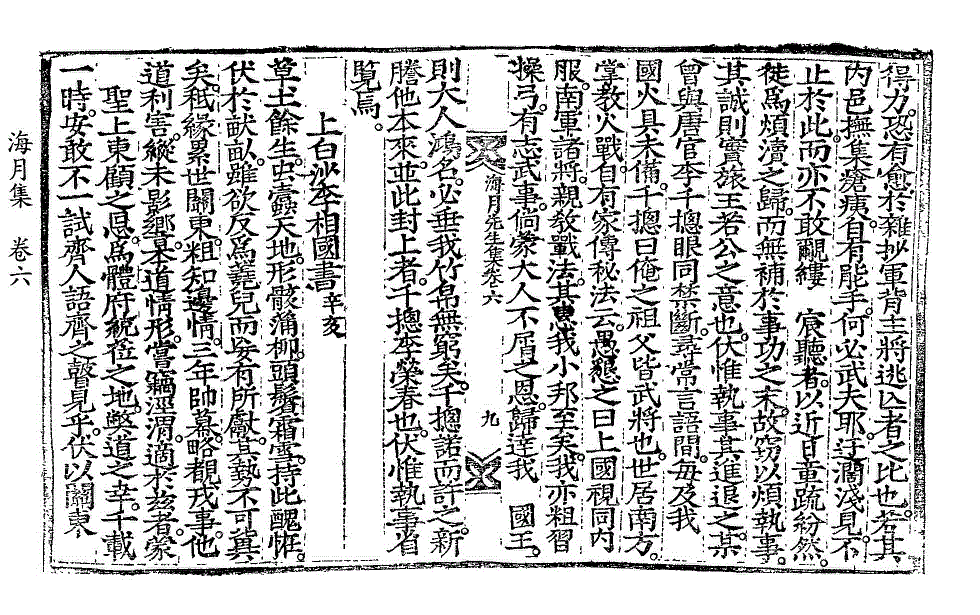 得力恐有愈於雜抄軍背主將逃亡者之比也若其
內邑撫集瘡痍自有能手何必武夫耶迂濶淺見不
止於此而亦不敢覼縷　宸聽者以近日章疏紛然
徒爲煩瀆之歸而無補於事功之末故窃以煩執事
其誠則實旅王若公之意也伏惟執事其進退之某
曾與唐官李千摠眼同禁斷尋常言語間每及我
國火具未備千摠曰俺之祖父皆武將也世居南方
掌教火戰自有家傳秘法云愚懇之曰上國視同內
服南軍諸將親敎戰法其惠我小邦至矣我亦粗習
操弓有志武事倘蒙大人不屑之恩歸達我　國王
海月先生集卷六　九
則大人鴻名必垂我竹帛無窮矣千摠諾而許之新
謄他本來並此封上者千摠李榮春也伏惟執事省
覽焉
上白沙李相國書 辛亥
草土餘生虫蠧天地形骸瀟柳頭鬢霜雪持此醜怪
伏於畎畝雖欲反爲嬈兒而安有所獻其勢不可冀
矣秖緣累世關東粗知邊情三年帥幕略覩戎事他
道利害縱未影嚮本道情形嘗竊涇渭適於玆者蒙
聖上東顧之恩爲體府統莅之地斃道之幸千載
一時安敢不一試齊人語齊之瞽見乎伏以關東
海月集　卷六